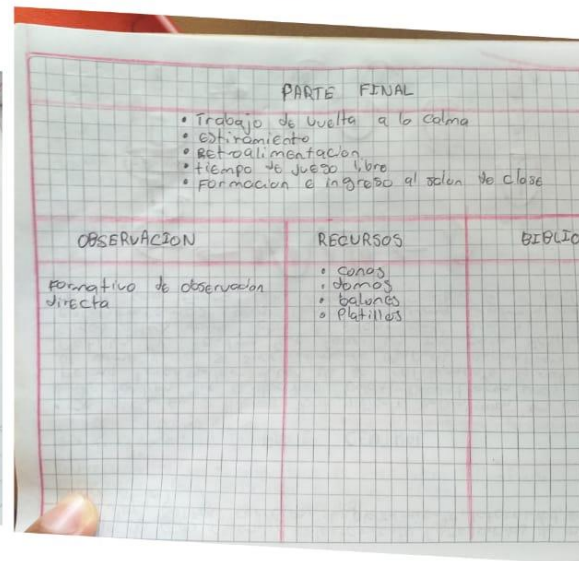 PARTE FINAL
• Trabajo de vuelta a la calma
• estiramiento
• REtroalimentacion
• tiempo de juego libre
• Formacion e ingreso al salon de clase
OBSERVACION
RECURSOS
BIBLIO
Formativo de observacion
directa
• conos
• domos
• balones
• Platillos